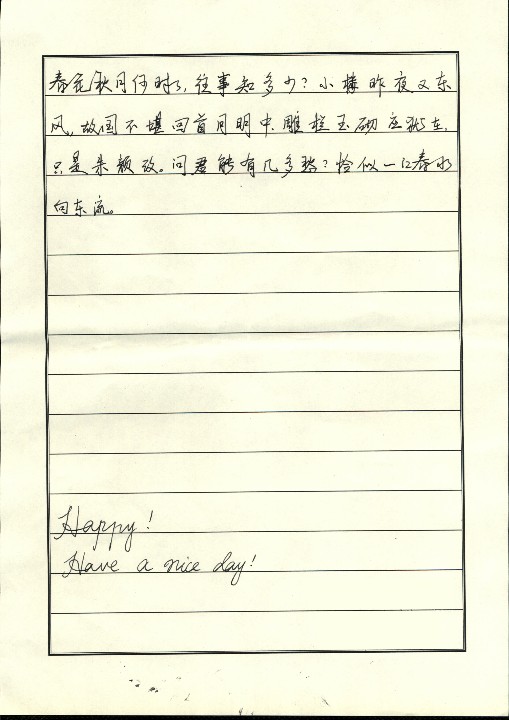 春花秋月何时了,往事知多少?小楼昨夜又东
风,故国不堪回首月明中.雕栏玉砌应犹在,
只是朱颜改。问君能有几多愁?恰似一江春水
向东流。
Happy!
Have a nice day!